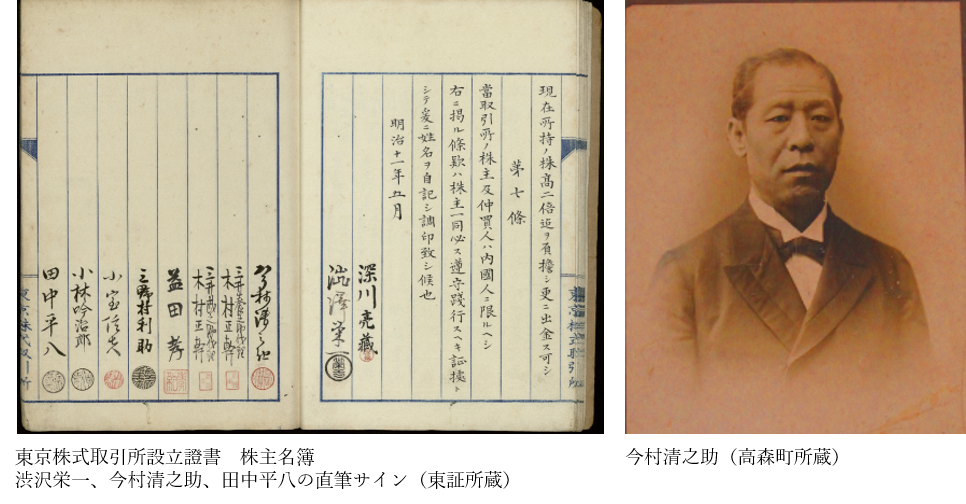 現在所持ノ株高二倍迠ヲ負擔シ更ニ出金ス可シ
第七條
當取引所ノ株主及仲買人ハ内國人ニ限ルヘシ
右ニ掲ル條欵ハ株主一同必ス遵守踐行スヘキ証據ト
シテ爰ニ姓名ヲ自記シ調印致シ候也
明治十一年五月
深川亮藏
澁澤栄一
今村清之助
木村正幹
木村正幹
益田孝
三野村利助
小室信夫
小林吟治郎
田中平八
東京株式取引所
東京株式取引所設立證書　株主名簿
渋沢栄一、今村清之助、田中平八の直筆サイン（東証所蔵）
今村清之助（高森町所蔵）